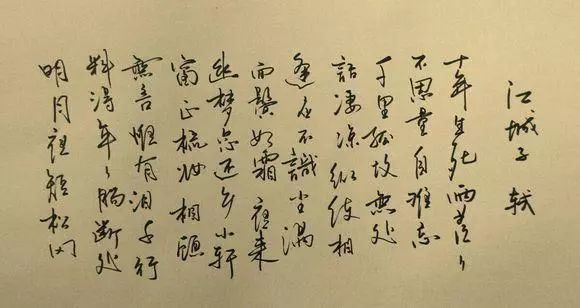 江城子 轼
十年生死两茫々
不思量自难忘
千里孤坟無处
話凄凉纵使相
逢应不識尘满
面鬓如霜夜来
幽梦忽还乡小轩
窗正梳妆相顧
無言惟有泪千行
料得年々肠断处
明月夜短松冈